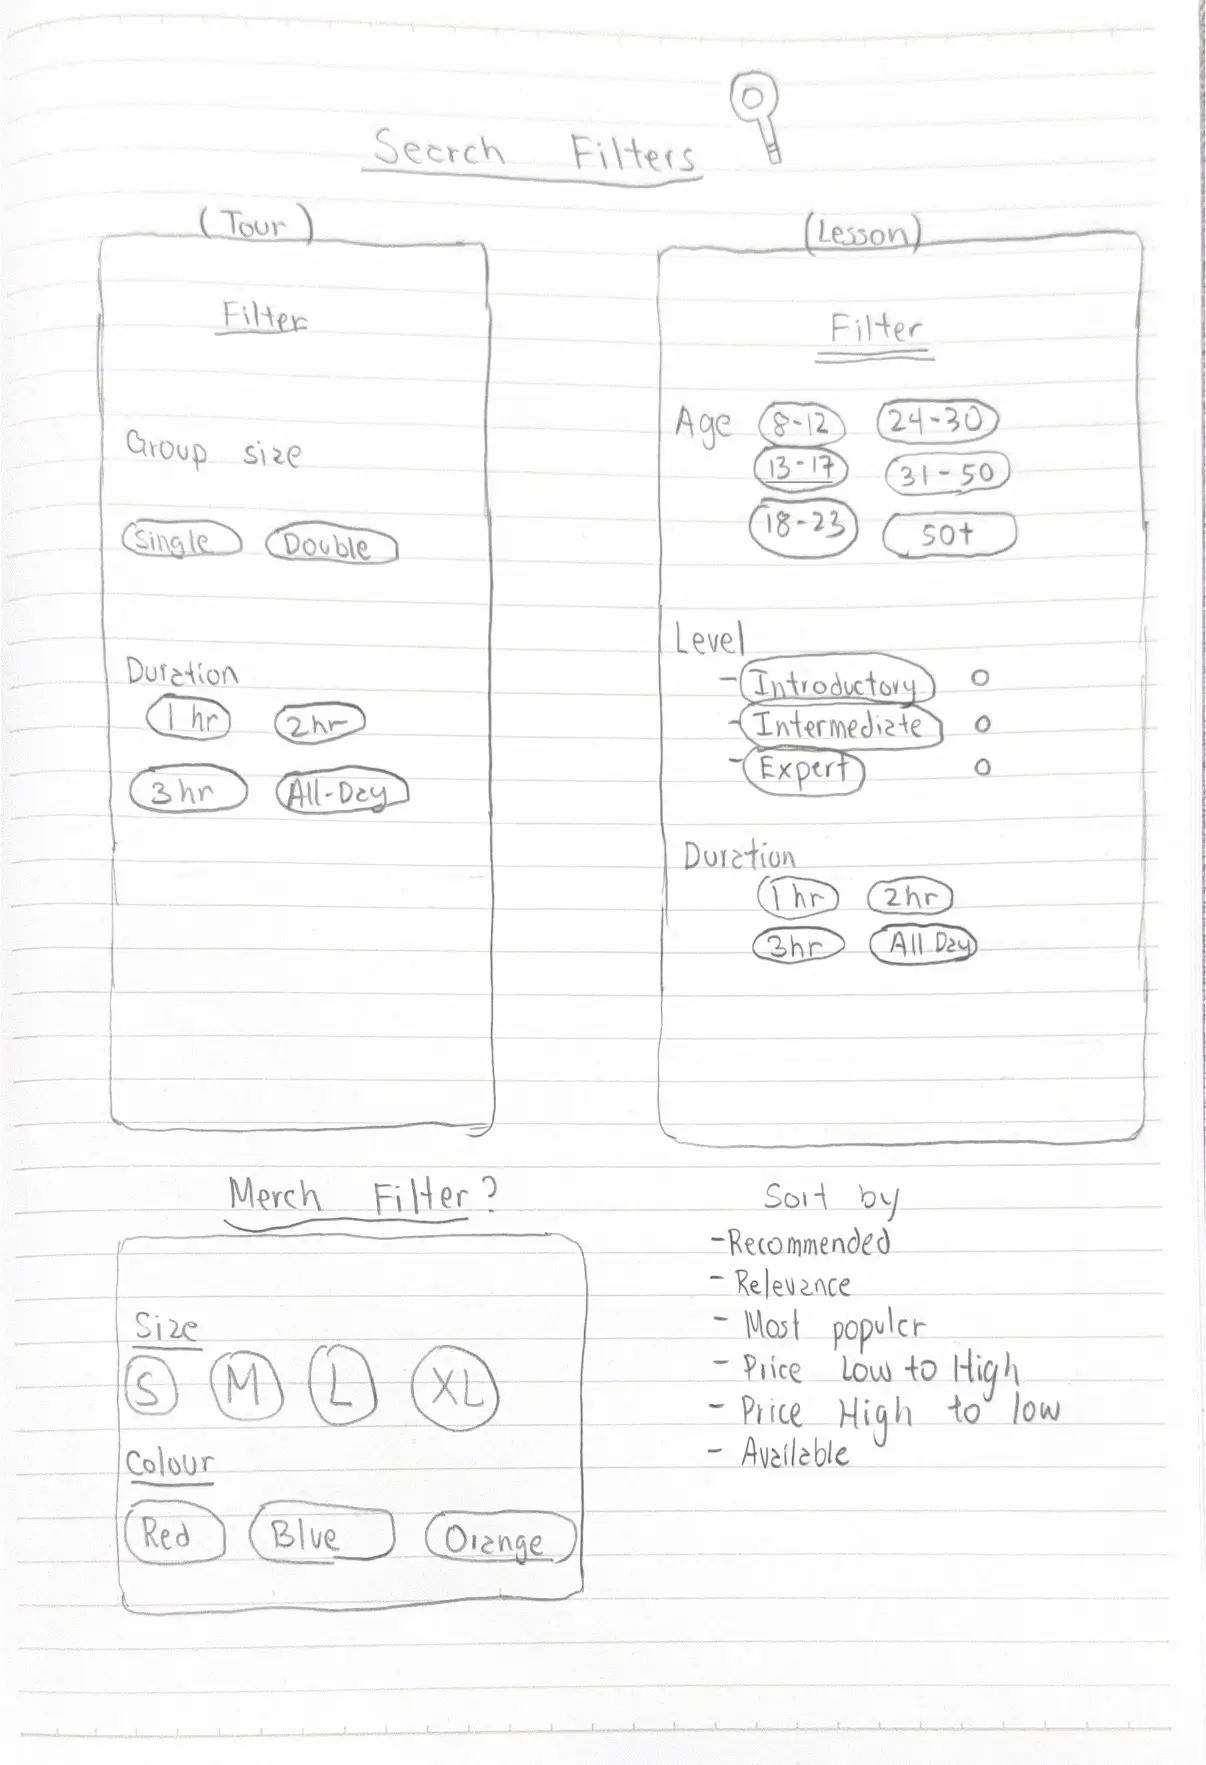 Search Filters
(Tour)
Filter
Group size
Single Double
Duration
1 hr 2hr
3 hr All-Day
(Lesson)
Filter
Age 8-12 24-30
13-17 31-50
18-23 50+
Level
- Introductory
- Intermediate
- Expert
Duration
1 hr 2hr
3hr All Day
Merch Filter?
Size
S M L XL
Colour
Red Blue Orange
Sort by
- Recommended
- Relevance
- Most popular
- Price Low to High
- Price High to low
- Available